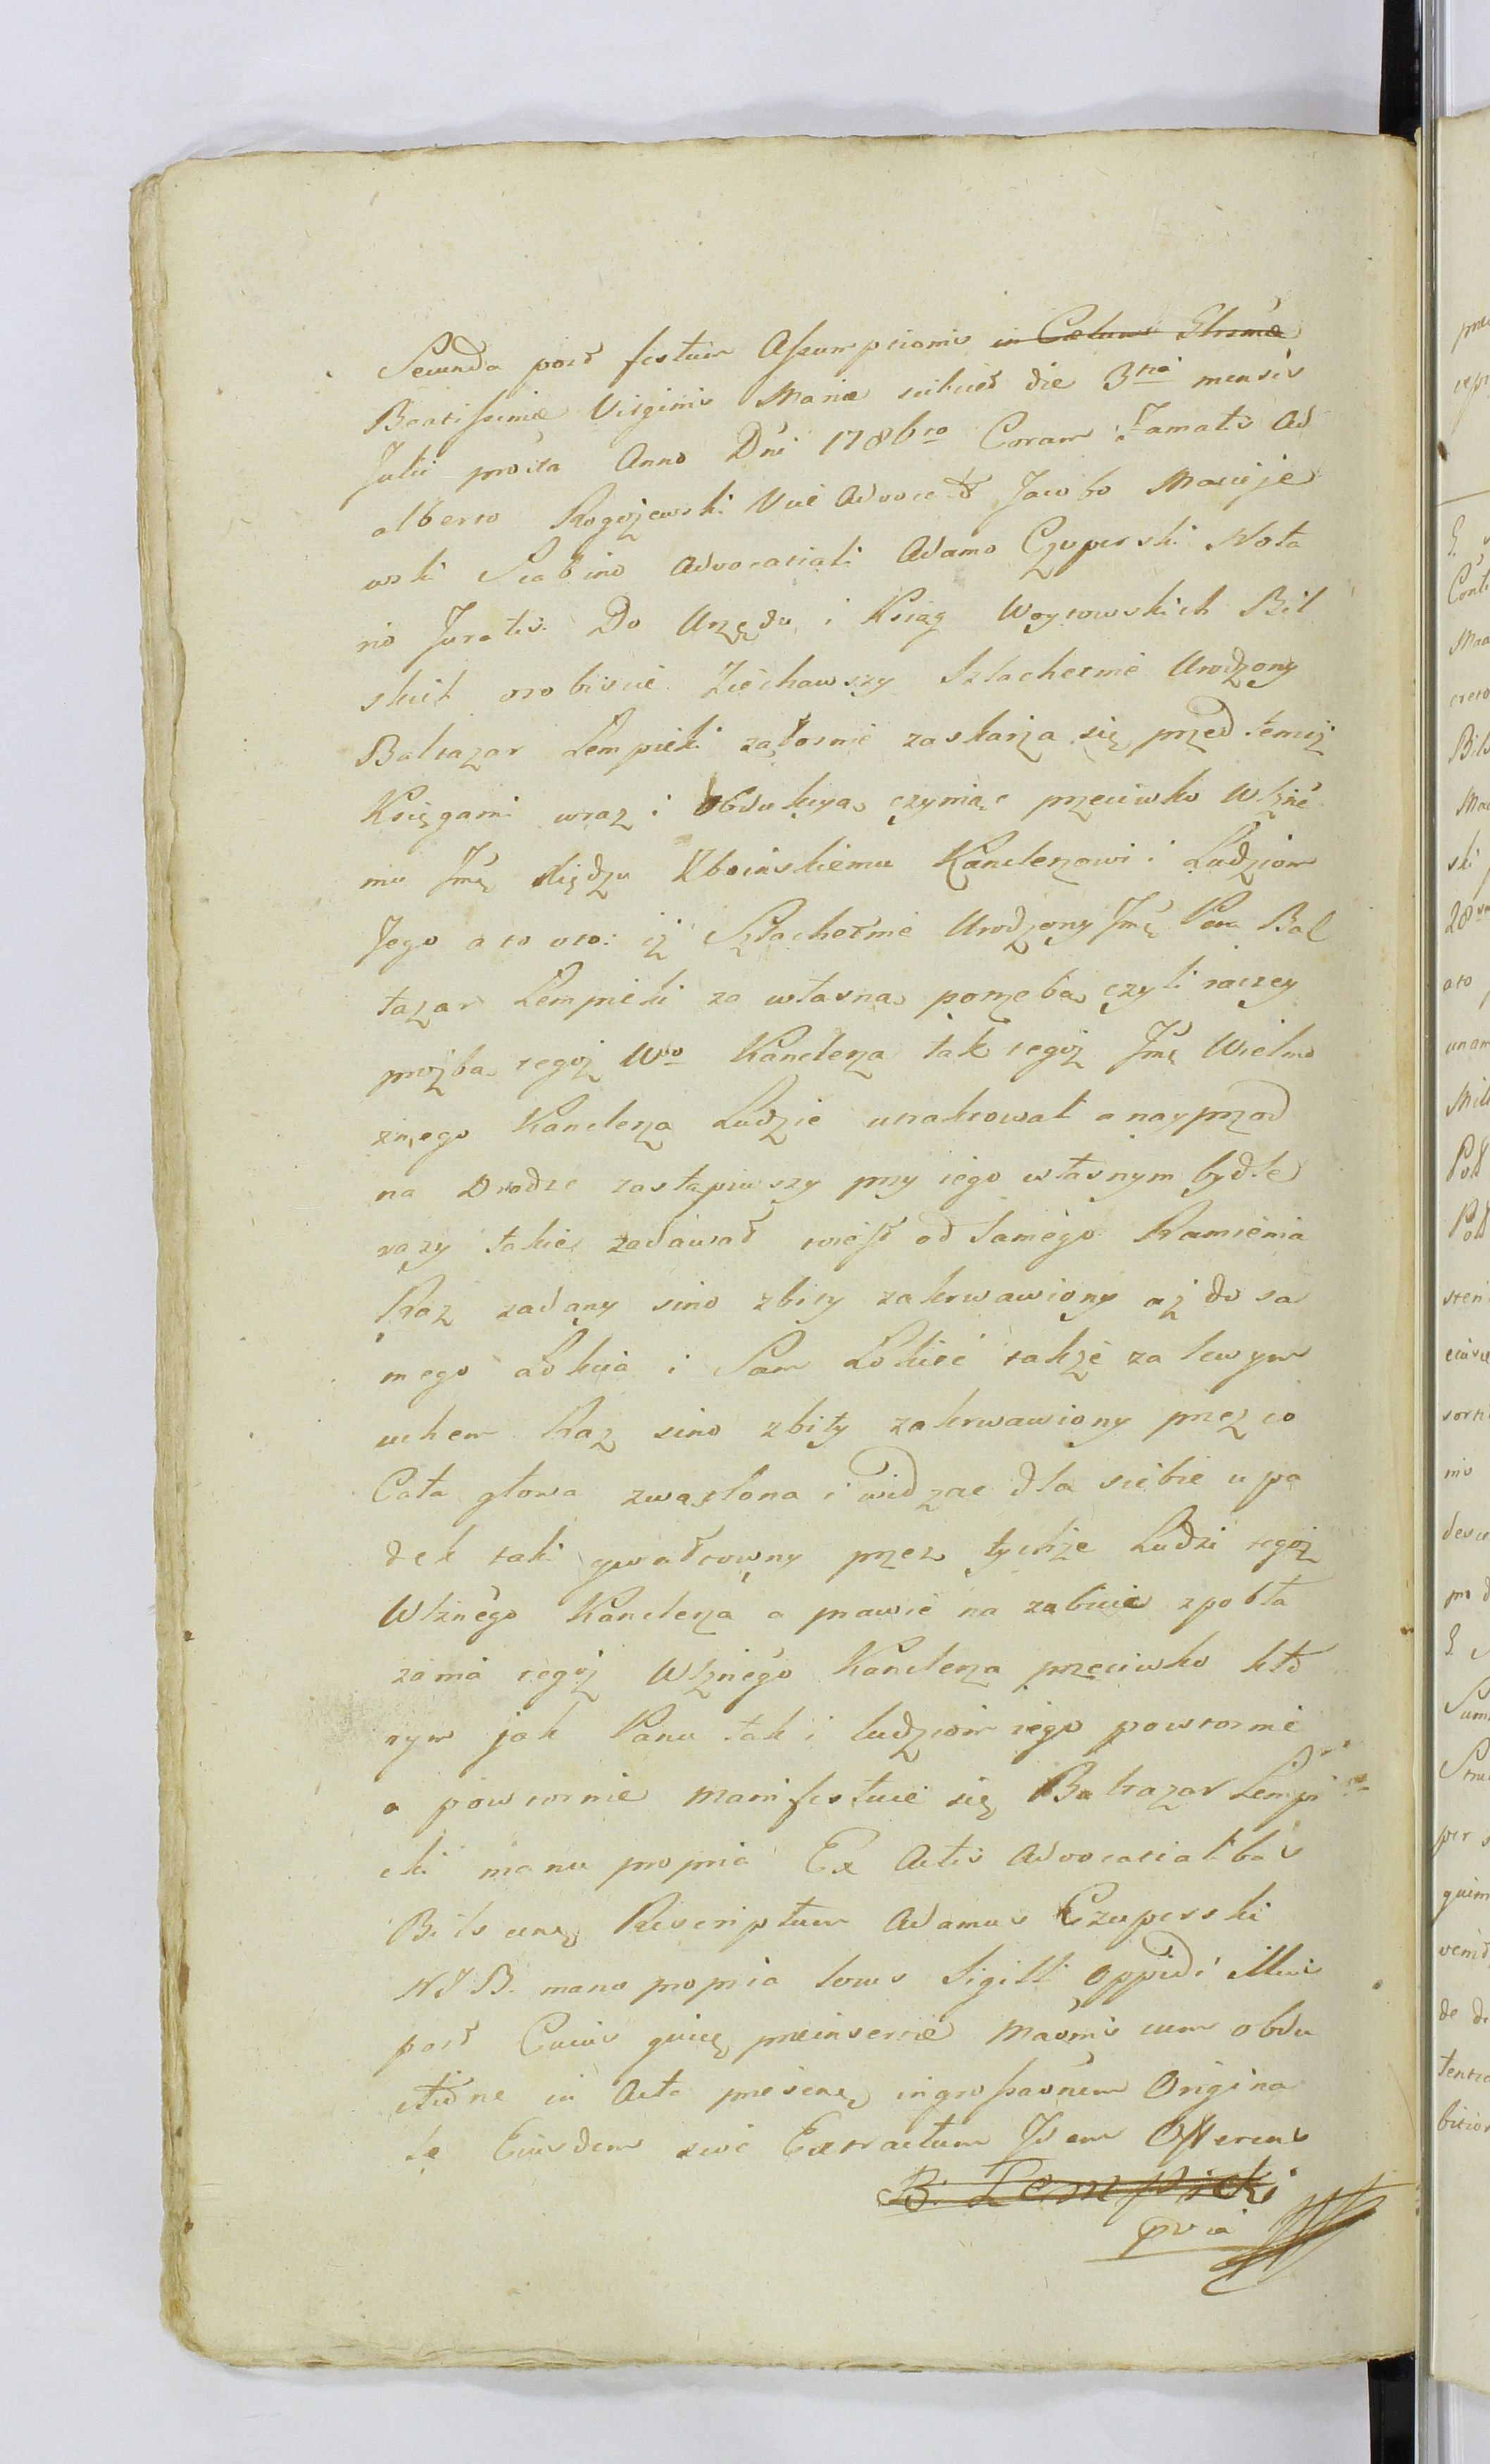 Secunda post festum Assumptionis in Coelum Glrsmæ
Beatissimæ Virginis Mariæ scilicet die 3tia mensis
Julii prosta Anno Dni 1786to Coram Famatis Ad
alberto Rogojewski Vice Advocato Jacobo Macieje
wski Scabino Advocatiali Adamo Czuperski Nota
rio Juratis. Do Urzędu i Ksiąg Woytowskich Bil
skich osobiscie Ziechawszy Szlachetnie Urodzony
Baltazar Lempicki załosnie zaskarza się przed temiż
Księgami wraz i Obdukcyą czyniąc przeciwko Wlżne
mu Jmę Xiędzu Kboinskiemu Kanclerzowi i Ludziom
Jego a to oto: iż Szlachetnie Urodzony Jmę Pan Bal
tazar Lempicki za własną porzebą czyli raczey
prożbą tegoż Wgo Kanclerza tak tegoż Jmę Wielmo
żnego Kanclerza Ludzie utraktowali a nayprzod
na Drodze zastąpiwszy przy iego własnym bydle
razy takie zadawali iest od samego Ramienia
Raz zadany sino zbity zakrwawiony aż do sa
mego Łokcia i Sam Łokieć także za lewym
uchem Raz sino zbity zakrwawiony przez co
Cała głowa zwątlona i widzac dla siebie upa
dek taki gwałtowny przez tychże Ludzi tegoż
Wlżnego Kanclerza a prawie na zabicie z pobła
zania tegoż Wlżnego Kanclerza przeciwko któ
rym jak Panu tak i ludziom iego powtornie
a powtornie manifestuie się Baltazar Lempi
cki manu propria Ex Actis Advocatialibus
Bilscens Rescriptum Adamus Czuperski
N J B. mano propria locus Sigilli Oppidi illius
post Cuius quidę præinsertæ Maōnis cum obdu
ctiōne in Acta præsens ingrossaōnem Origina
le Eiusdem sive Extractum Idem Offerens
B. Lempicki